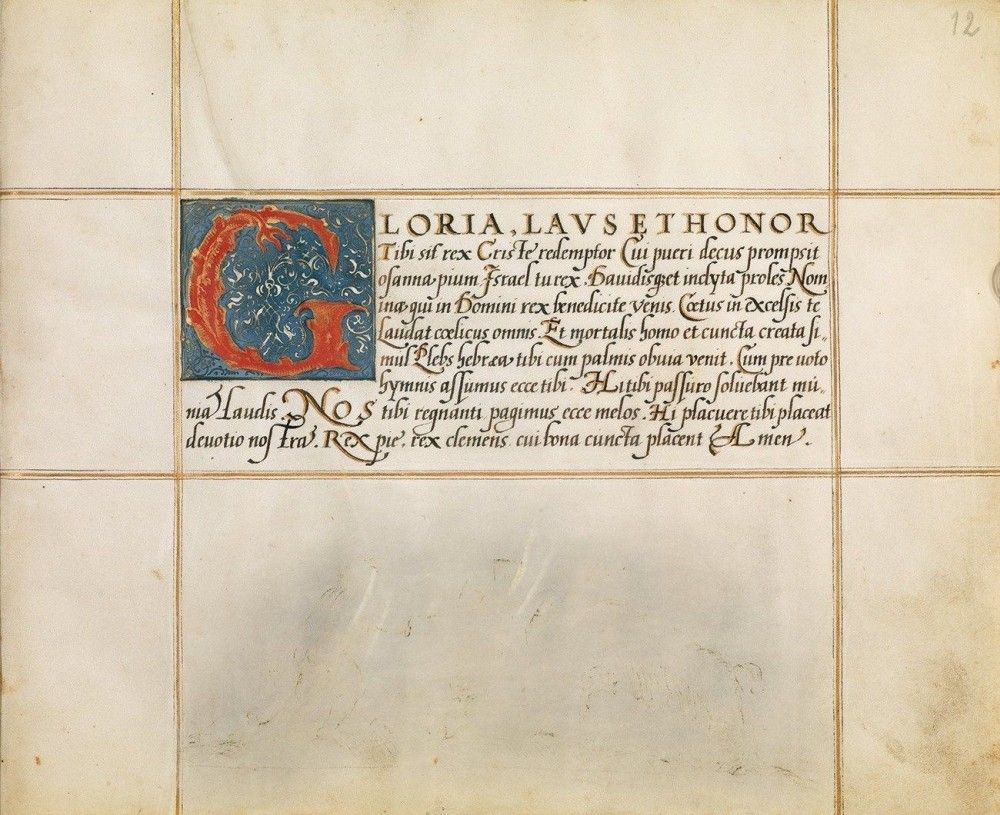 12
GLORIA, LAVS ET HONOR
Tibi sit rex Criste redemptor Cui pueri decus prompsit
osanna pium Israel tu rex. Dauidisq; et inclyta proles Nom
ineq; qui in Domini rex benedicite venis. Cœtus in excelsis te
Laudat cœlicus omnis. Et mortalis homo et cuncta creata si
mul Plebs hebrea tibi cum palmis obuia venit. Cum pre uoto
hymnis assumus ecce tibi. Hi tibi passuro soluebant mu..
nia laudis. Nos tibi regnanti pagimus ecce melos. Hi placuere tibi placeat
deuotio nostra. Rex pie. rex clemens. cui bona cuncta placent Amen.